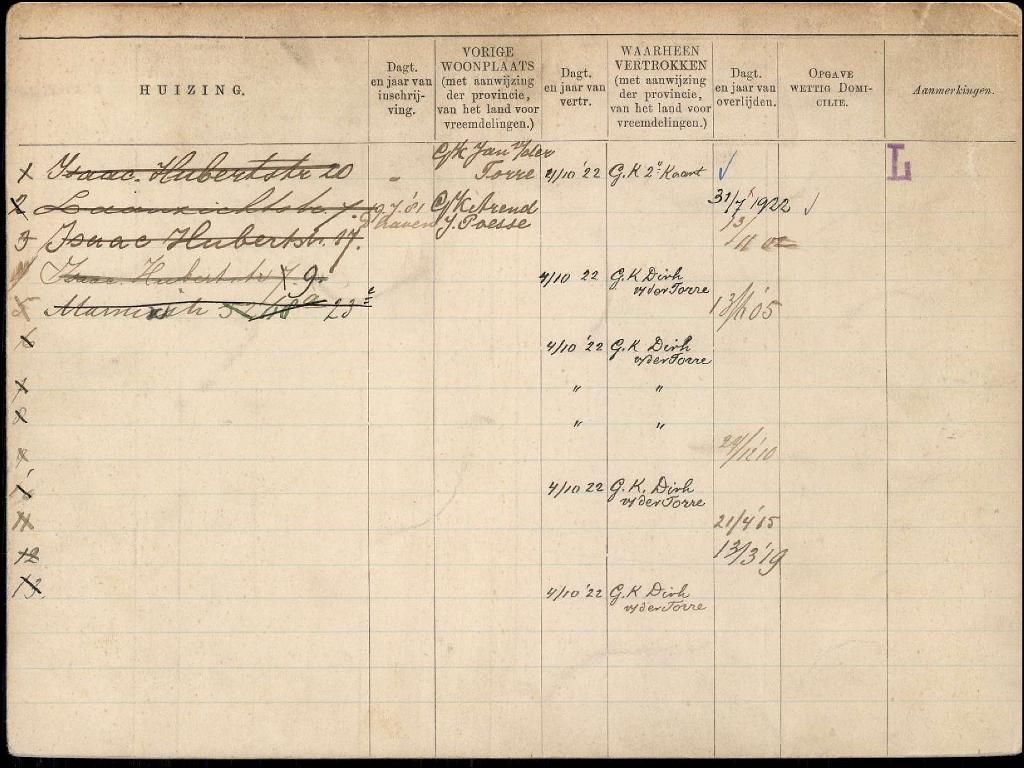 HUIZING.
Dagt. en jaar van inschrij- ving.
VORIGE WOONPLAATS (met aanwijzing der provincie, van het land voor vreemdelingen.)
Dagt. en jaar van vertr.
WAARHEEN VERTROKKEN (met aanwijzing der provincie, van het land voor vreemdelingen.)
Dagt. en jaar van overlijden.
OPGAVE WETTIG DOMI- CILIE.
Aanmerkingen.
G/K Jan v/der
1 Isaac Hubertstr 20 - Torre 4/10 '22 G.K 2e Kaart L
2 7 9.7.'81 G/K 31/7 1922
3 Isaac Hubertstr. 17. J. Poesse 13/11 02
4 Isaac Hubertstr 9. 4/10 22 G.K Dirk
v/der Torre
5 23 13/1 '05
6 4/10 '22 G.K Dirk
v/der Torre
7 " "
8 " "
9
10 4/10 22 G.K. Dirk
v/der Torre
11 21/4 '15
12 13/3 '19
13. 4/10 '22 G.K Dirk
v/der Torre